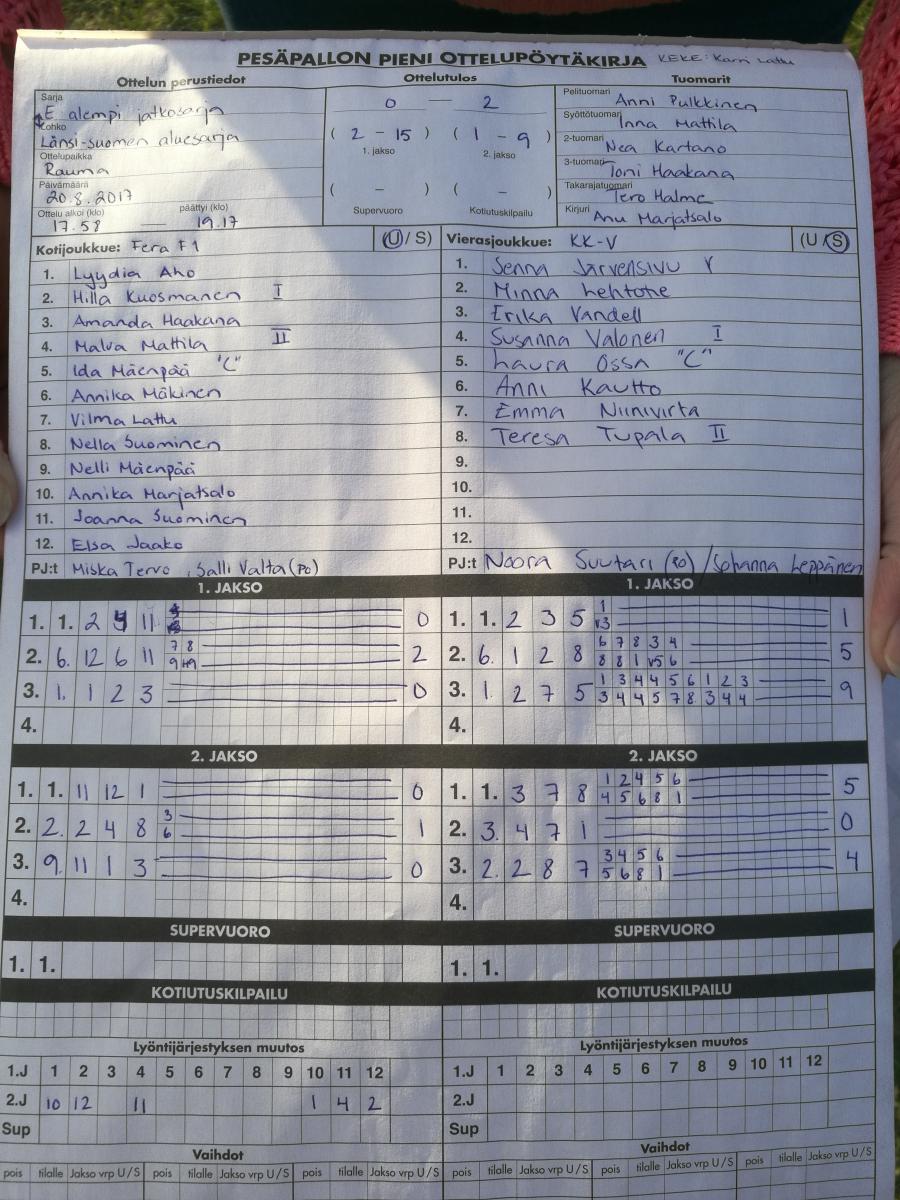 PESÄPALLON PIENI OTTELUPÖYTÄKIRJA KEKE: Karri Lattu
Ottelun perustiedot Ottelutulos Tuomarit
Sarja
E alempi jatkosarja
Lohko
Länsi-suomen aluesarja
Ottelupaikka
Rauma
Päivämäärä
20.8.2017
Ottelu alkoi (klo) päättyi (klo)
17.58 — 19.17
0 — 2
( 2 - 15 ) ( 1 - 9 )
1. jakso 2. jakso
( - ) ( - )
Supervuoro Kotiutuskilpailu
Pelituomari Anni Pulkkinen
Syöttötuomari Inna Mattila
2-tuomari Nea Kartano
3-tuomari Toni Haakana
Takarajatuomari Tero Halme
Kirjuri Anu Marjatsalo
Kotijoukkue: Fera F1 (U / S)
1. Lyydia Aho
2. Hilla Kuosmanen I
3. Amanda Haakana
4. Malva Mattila II
5. Ida Mäenpää "C"
6. Annika Mäkinen
7. Vilma Lattu
8. Nella Suominen
9. Nelli Mäenpää
10. Annika Marjatsalo
11. Joanna Suominen
12. Elsa Jaako
PJ:t Miska Tervo, Salli Valta (PO)
Vierasjoukkue: KK-V (U / S)
1. Senna Järvensivu V
2. Minna Lehtone
3. Erika Vandell
4. Susanna Valonen I
5. Laura Ossa "C"
6. Anni Kautto
7. Emma Niinivirta
8. Teresa Tupala II
9.
10.
11.
12.
PJ:t Noora Suutari (PO) / Johanna Leppänen
1. JAKSO
1. 1. 2 11 0
2. 6. 12 6 11 7 8 2
9
3. 1. 1 2 3 0
4.
1. JAKSO
1. 1. 2 3 5 1 1
v3
2. 6. 1 2 8 6 7 8 3 4 5
8 8 1 v5 6
3. 1. 2 7 5 1 3 4 4 5 6 1 2 3 9
3 4 4 5 7 8 3 4 4
4.
2. JAKSO
1. 1. 11 12 1 0
2. 2. 2 4 8 3 1
6
3. 9. 11 1 3 0
4.
2. JAKSO
1. 1. 3 7 8 1 2 4 5 6 5
4 5 6 8 1
2. 3. 4 7 1 0
3. 2. 2 8 7 3 4 5 6 4
5 6 8 1
4.
SUPERVUORO
1. 1.
SUPERVUORO
1. 1.
KOTIUTUSKILPAILU
KOTIUTUSKILPAILU
Lyöntijärjestyksen muutos
1.J 1 2 3 4 5 6 7 8 9 10 11 12
2.J 10 12 11 1 4 2
Sup
Lyöntijärjestyksen muutos
1.J 1 2 3 4 5 6 7 8 9 10 11 12
2.J
Sup
Vaihdot
pois tilalle Jakso vrp U/S pois tilalle Jakso vrp U/S pois tilalle Jakso vrp U/S
Vaihdot
pois tilalle Jakso vrp U/S pois tilalle Jakso vrp U/S pois tilalle Jakso vrp U/S